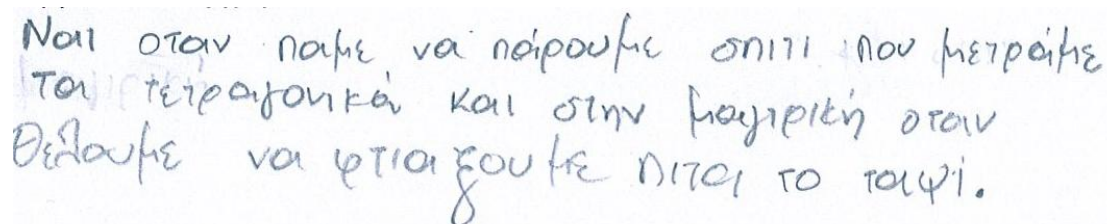 Ναι οταν παμε να πάρουμε σπιτι που μετράμε
τα τετραγονικά και στην μαγιρική οταν
θέλουμε να φτιαξουμε πιτα το ταψί.